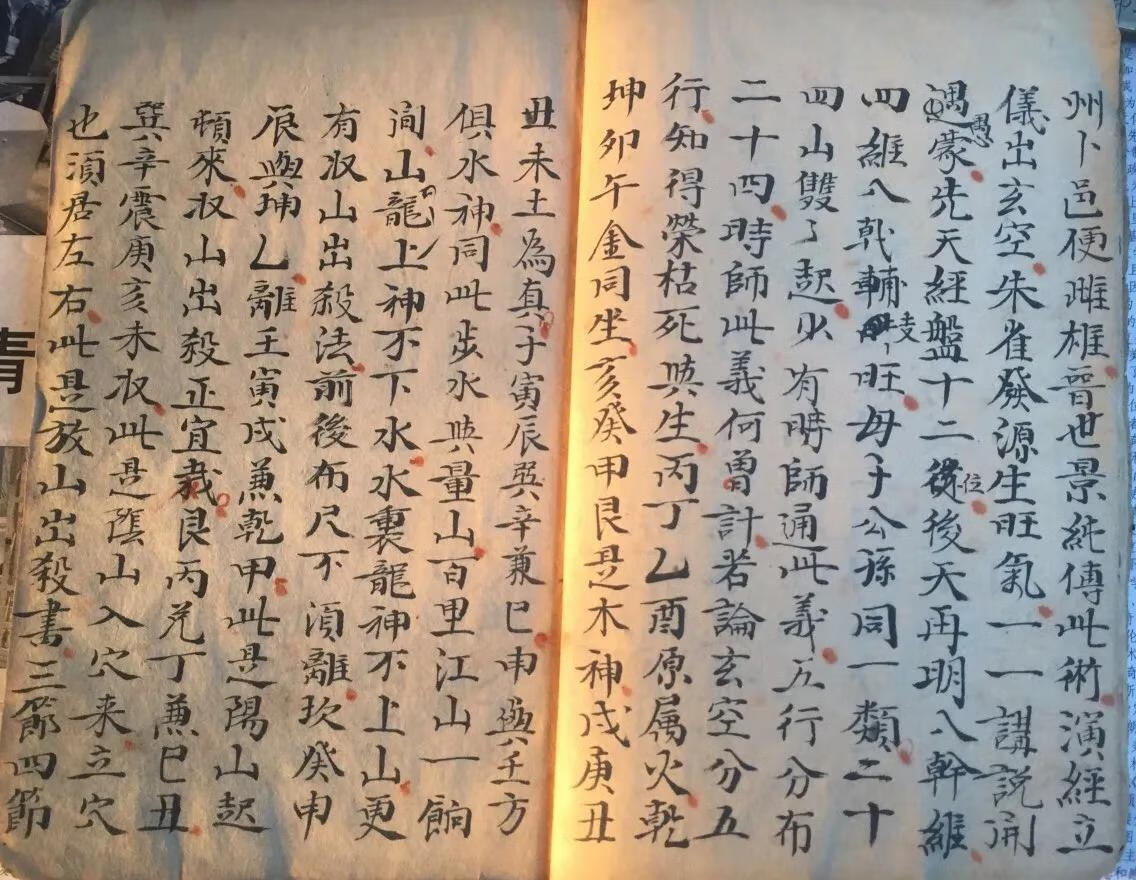 州卜邑便雌雄晉世景純傳此術演經立
儀出玄空朱雀發源生旺氣一一講説開
遇愚蒙先天經盤十二後位後天再明八幹維
四維八乹輔支旺母子公孫同一類二十
四山雙々起少有時師通此義五行分布
二十四時師此義何曾計若論玄空分五
行知得榮枯死與生丙丁乙酉原属火乾
坤卯午金同坐亥癸甲艮是木神戌庚丑
丑未土為真子寅辰巽辛兼巳申與壬方
俱水神同此出水與量山百里江山一餉
间山龍上神不下水水裏龍神不上山更
有收山出殺法前後布尺不須離坎癸申
辰與坤乙離壬寅戌兼乾甲此是陽山起
頓來收山出殺正宜裁艮丙兑丁兼巳丑
巽辛震庚亥未收此是陰山入穴来立穴
也須居左右此是放山出殺書三節四節